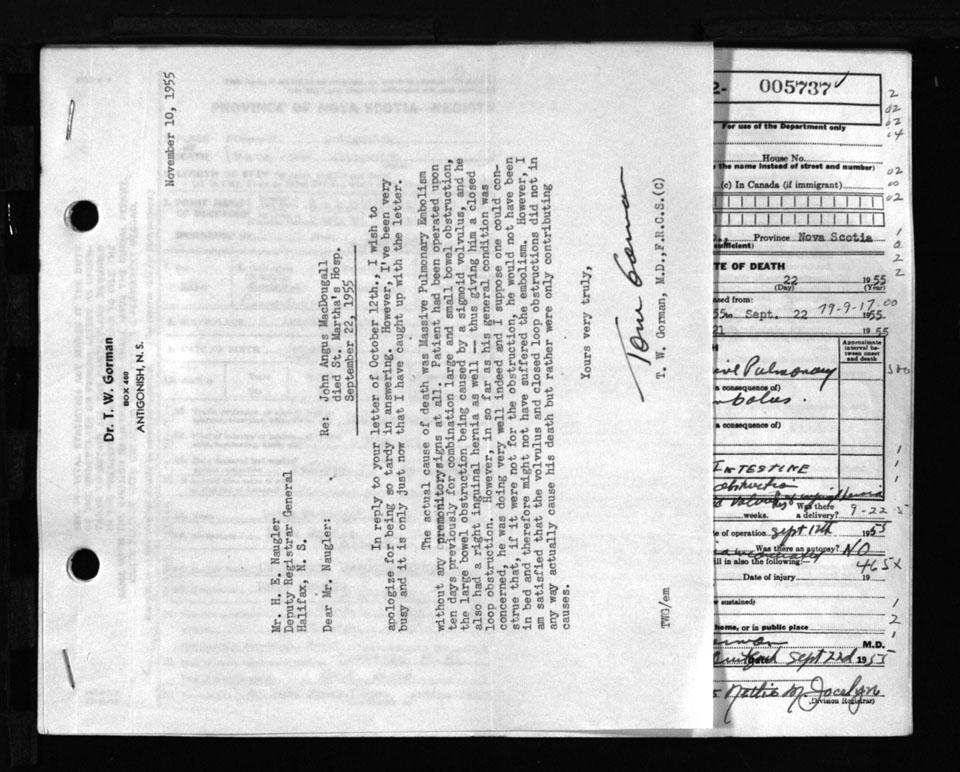 Dr. T. W. Gorman
BOX 460
ANTIGONISH, N. S.
November 10, 1955
Mr. H. E. Naugler
Deputy Registrar General
Halifax, N. S.
Dear Mr. Naugler:
Re: John Angus MacDougall
died St. Martha's Hosp.
September 22, 1955
In reply to your letter of October 12th., I wish to
apologize for being so tardy in answering. However, I've been very
busy and it is only just now that I have caught up with the letter.
The actual cause of death was Massive Pulmonary Embolism
without any premonitorysigns at all. Patient had been operated upon
ten days previously for combination large and small bowel obstruction,
the large bowel obstruction being caused by a sigmoid volvulus, and he
also had a right inguinal hernia as well - thus giving him a closed
loop obstruction. However, in so far as his general condition was
concerned, he was doing very well indeed and I suppose one could con-
strue that, if it were not for the obstruction, he would not have been
in bed and therefore might not have suffered the embolism. However, I
am satisfied that the volvulus and closed loop obstructions did not in
any way actually cause his death but rather were only contributing
causes.
Yours very truly,
Tom Gorman
T. W. Gorman, M.D.,F.R.C.S.(C)
TWG/em
2- 005737
For use of the Department only
House No.
the name instead of street and number)
(c) In Canada (if immigrant)
Province Nova Scotia
TE OF DEATH
22 1955
(Day) (Year)
sed from:
55to Sept. 22 1955
19-9-17.00
21 1955
Approximate
interval be-
tween onset
and death
ive Pulmonary
a consequence of)
bolus.
a consequence of)
INTESTINE
obstruction
Was there
weeks. a delivery? 9-22-5
e of operation Sept 12th 1955
Was there an autopsy? NO
ill in also the following:
465x
Date of injury 19
w sustained:
home, or in public place
M.D.
Sept 22d 1955
Nettie M. Jocelyn
(Division Registrar)
2
02
02
04
02
00
02
1
0
2
2
1
1
1
2
1